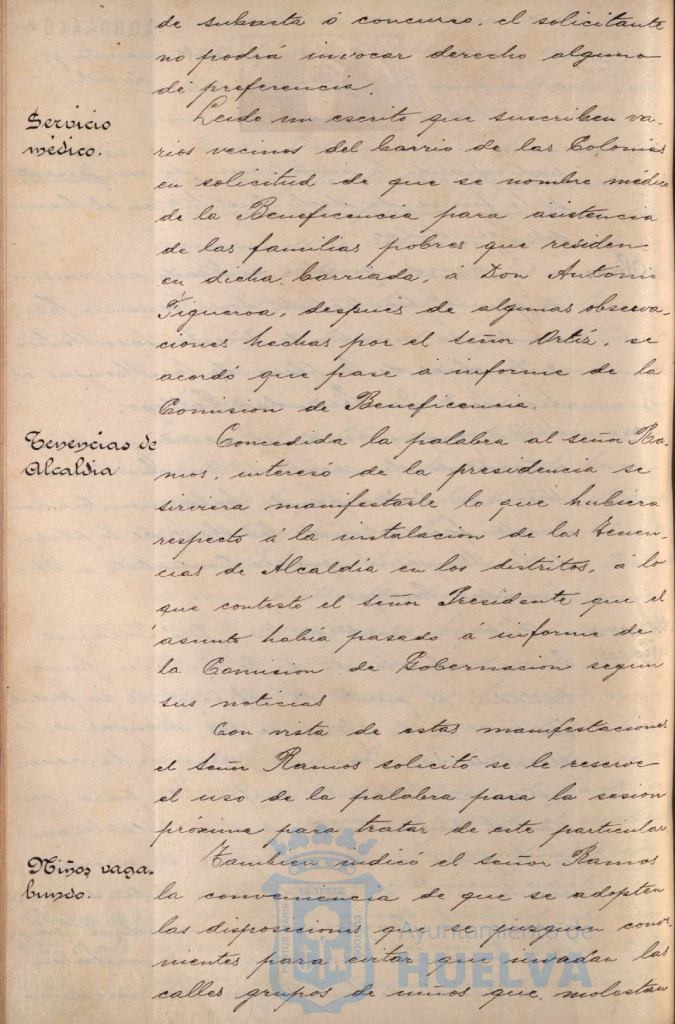 de subasta ó concurso, el solicitante
no podrá invocar derecho alguno
de preferencia.
Servicio
médico.
Leido un escrito que suscriben va-
rios vecinos del barrio de las Colonias
en solicitud de que se nombre médico
de la Beneficencia para asistencia
de las familias pobres que residen
en dicha barriada, á Don Antonio
Figueroa, después de algunas observa-
ciones hechas por el señor Ortíz, se
acordó que pase á informe de la
Comision de Beneficencia.
Tenencias de
Alcaldia
Concedida la palabra al señor Ra-
mos, interesó de la presidencia se
sirviera manifestarle lo que hubiera
respecto á la instalacion de las Tenen-
cias de Alcaldía en los distritos, á lo
que contestó el señor Presidente que el
asunto había pasado á informe de
la Comision de Gobernacion segun
sus noticias
Con vista de estas manifestaciones
el señor Ramos solicitó se le reserve
el uso de la palabra para la sesion
próxima para tratar de este particular.
Niños vaga-
bundo.
Tambien indicó el señor Ramos
la conveniencia de que se adopten
las disposiciones que se juzguen conve-
nientes para evitar que invadan las
calles grupos de niños que molestan
Ayuntamiento de
HUELVA